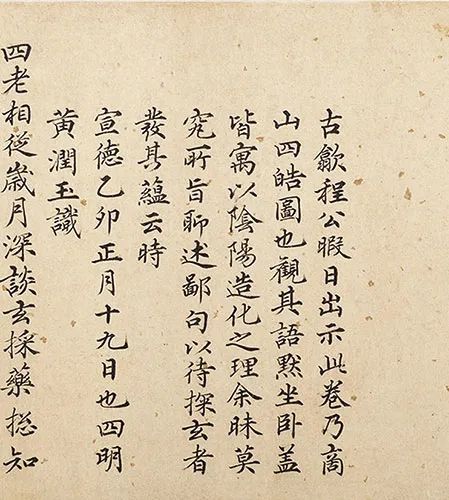 古歙程公暇日出示此卷乃商
山四皓圖也觀其語默坐卧蓋
皆寓以陰陽造化之理余昧莫
究所旨聊述鄙句以待探玄者
發其蘊云時
宣德乙卯正月十九日也四明
黃潤玉識
四老相從嵗月深談玄採藥揔知